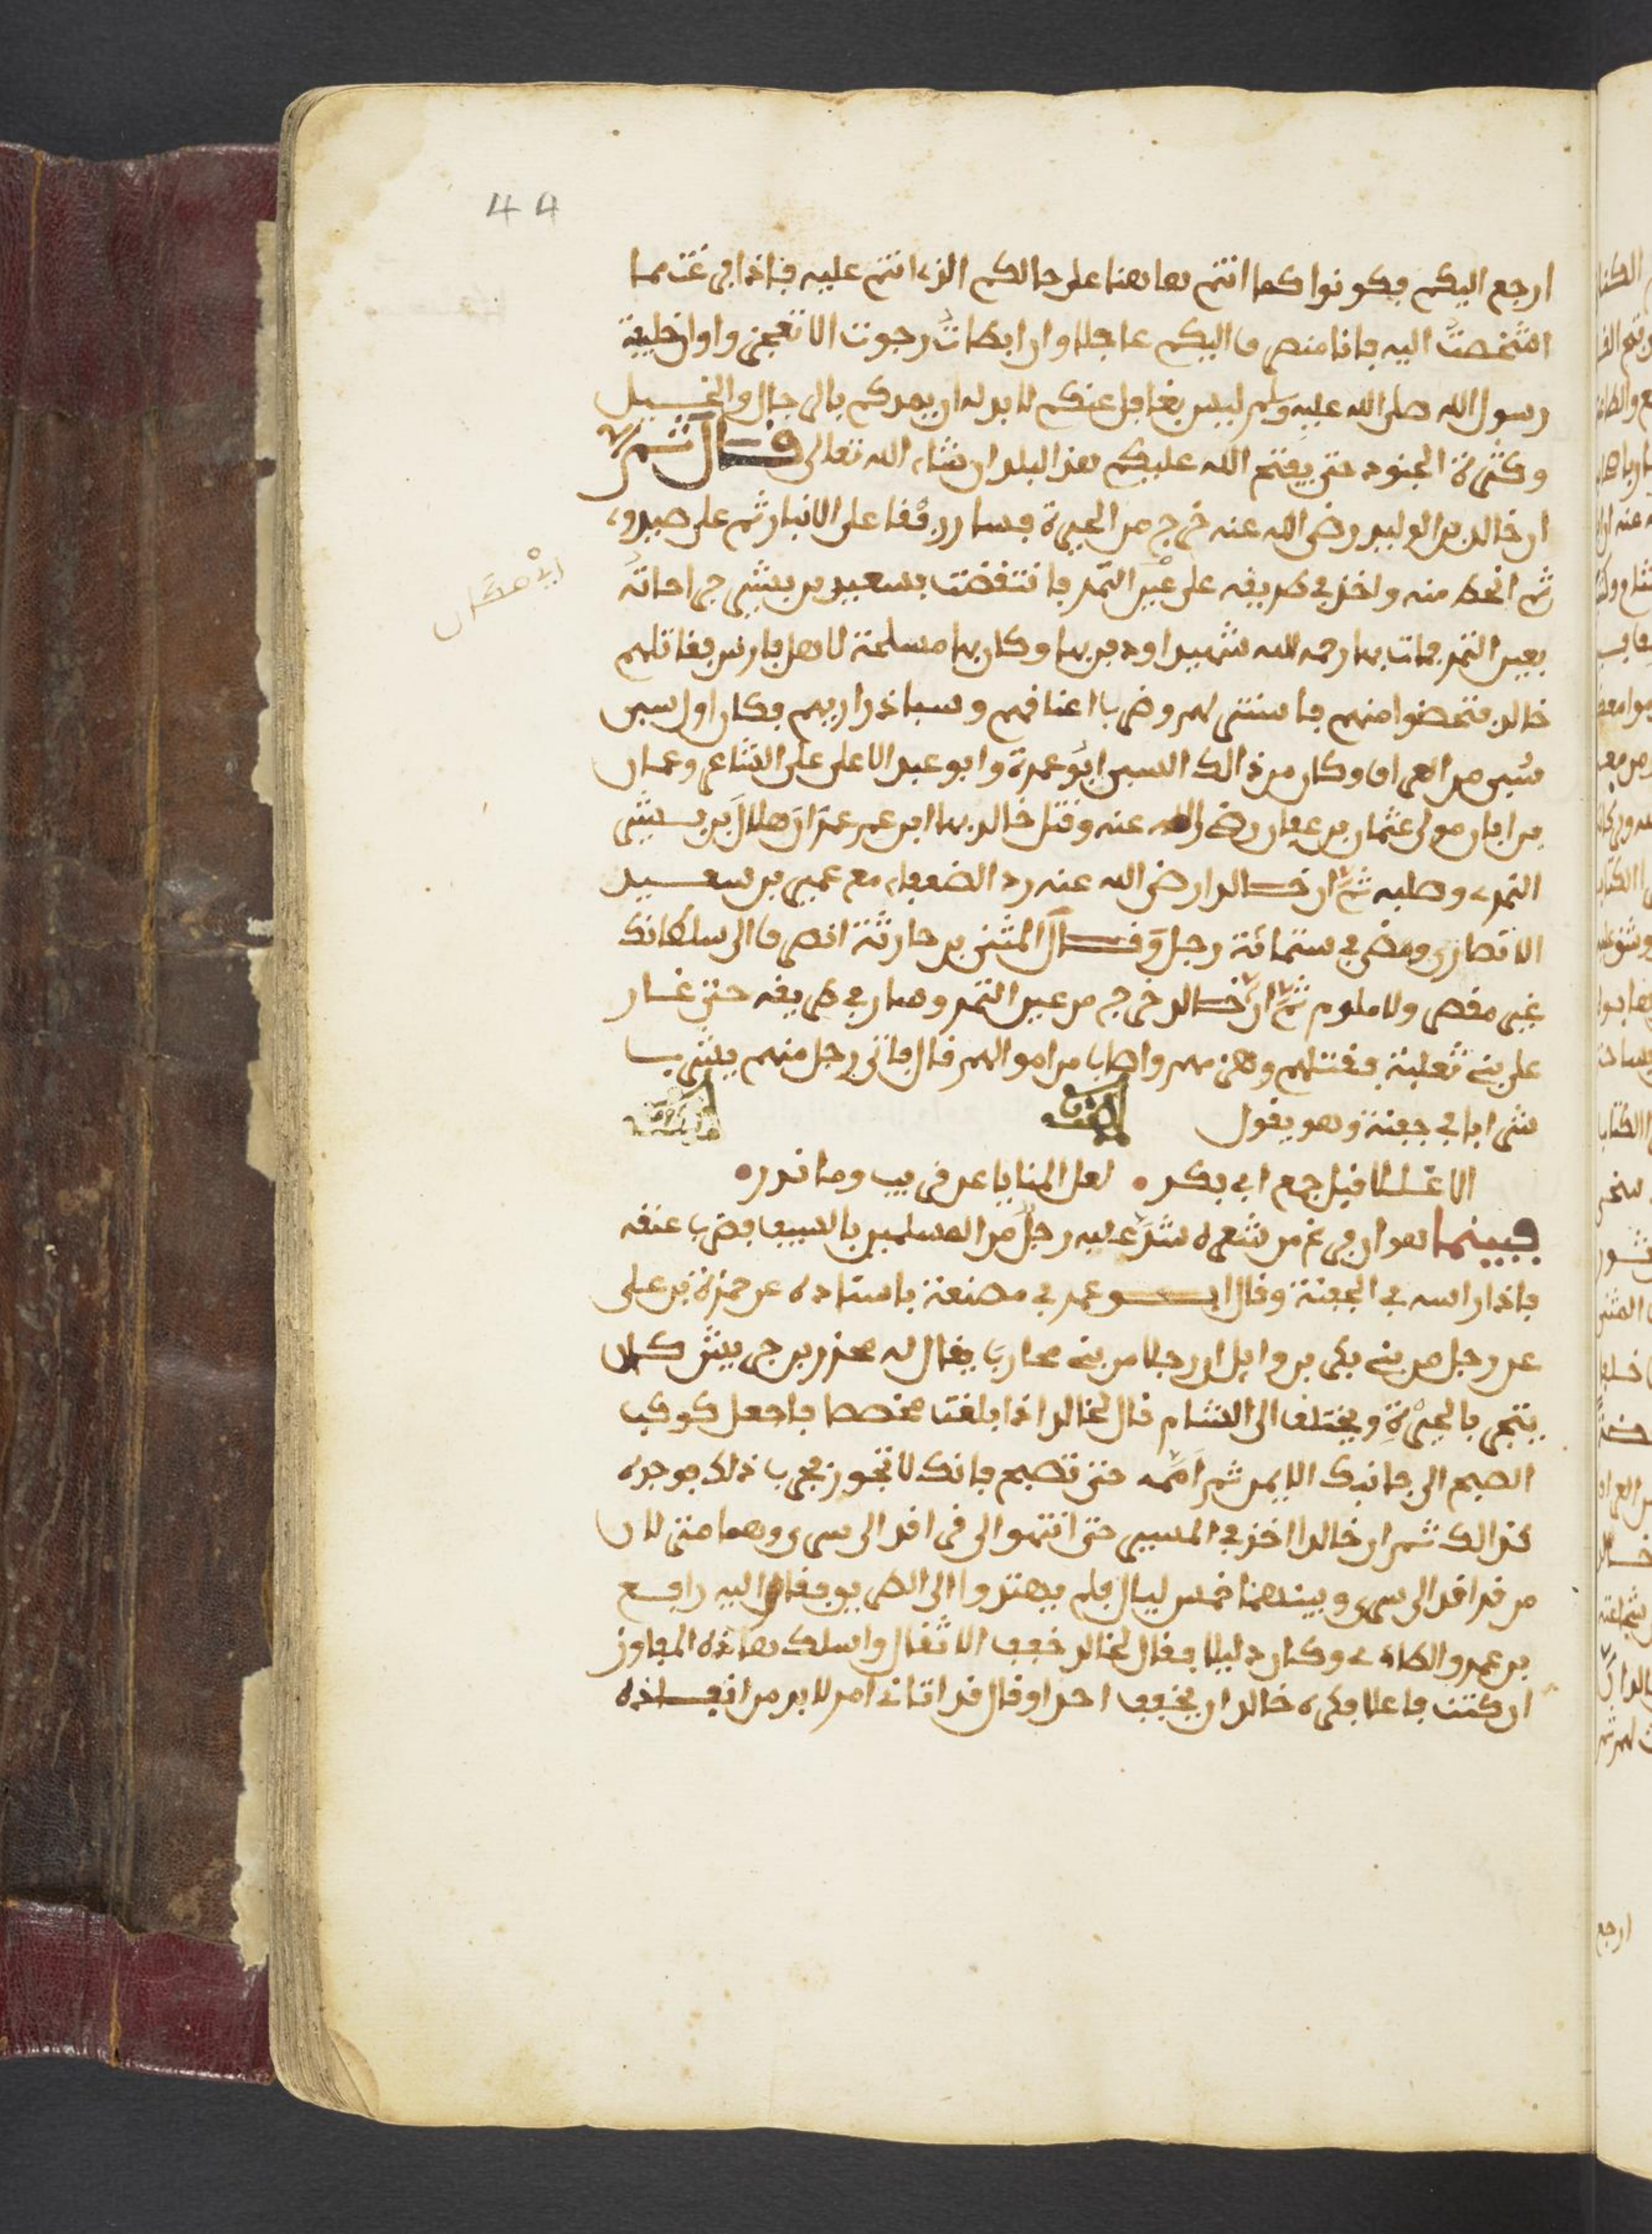 44
ارجع اليكم فكونوا كما انتم هاهنا على حالكم الذى انتم عليه فاذا فرغت مما
اشخصت اليه فانا منصرف اليكم عاجلا وان ابطات رجوت الا تعجزوا وان خليفة
رسول الله صلى الله عليه وسلم ليس بغافل عنكم لابد له ان يمدكم بالرجال والخيل
وكثرة الجنود حتى يفتح الله عليكم هذا البلد ان شاء الله تعالى قال ثم
ان خالد بن الوليد رضى الله عنه خرج من الحيرة فسار على الانبار ثم على صندوداء
ثم انحط منه واخذ في طريقه على عين التمر فانتقضت بسعيد بن بشير جراحاته
بعين التمر فمات بها رحمه الله شهيدا ودفن بها وكان بها مسلحة لاهل فارس فقاتلهم
خالد فتحصنوا منهم فاستنزلهم وضرب اعناقهم وسبا ذراريهم فكان اول سبى
سبى من العراق وكان من ذالك السبى ابو عمرة وابو عبد الاعلى الشاعر وحمران
بن ابان مولى عثمان بن عفان رضى الله عنه وقتل خالد بها هلال بن بشير
النمرى وصلبه ثم ان خالدا رضى الله عنه رد الضعفاء مع عمير بن سعيد
الانصارى ومضى في ستمائة رجل وقال المثنى بن حارثة انصرف الى سلطانك
غير مقصر ولا ملوم ثم ان خالد خرج من عين التمر وصار في طريقه حتى غار
على بنى تغلبة فقتلهم وهزمهم واصاب من اموالهم قال فاتى رجل منهم يشرب
شرابا في جفنة وهو يقول
الا عللانى قبل جمع ابى بكر • لعل المنايا عن قريب وما ندر •
فبينما هو ان فرغ من شعره شد عليه رجل من المسلمين بالسيف فضرب عنقه
فاذا راسه في الجفنة وقال ابو عمر في مصنفه باسناده عن حمزة بن على
عن رجل من بنى بكر بن وايل ان رجلا من بنى محارب يقال له محرز بن حريش كان
يتجر بالحيرة ويختلف الى الشام قال لخالد اذا بلغت فاجعل كوكب
الصبح الى جانبك الايمن ثم امه حتى تصبح فانك لا تجور فجرب ذلك فوجده
كذالك ثم ان خالدا اخذ في المسير حتى انتهوا الى قراقر الى سوى وهما منزلان
من قراقر الى سوى وبينهما خمس ليال فلم يهتدوا الى الطريق فقال اليه رافع
بن عمرو الطاءى وكان دليلا فقال لخالد خفف الاثقال واسلك هاذه المفاوز
ان كنت فاعلا فكره خالد ان يخفف احدا وقال قد اتانى امر لابد من انفاذه